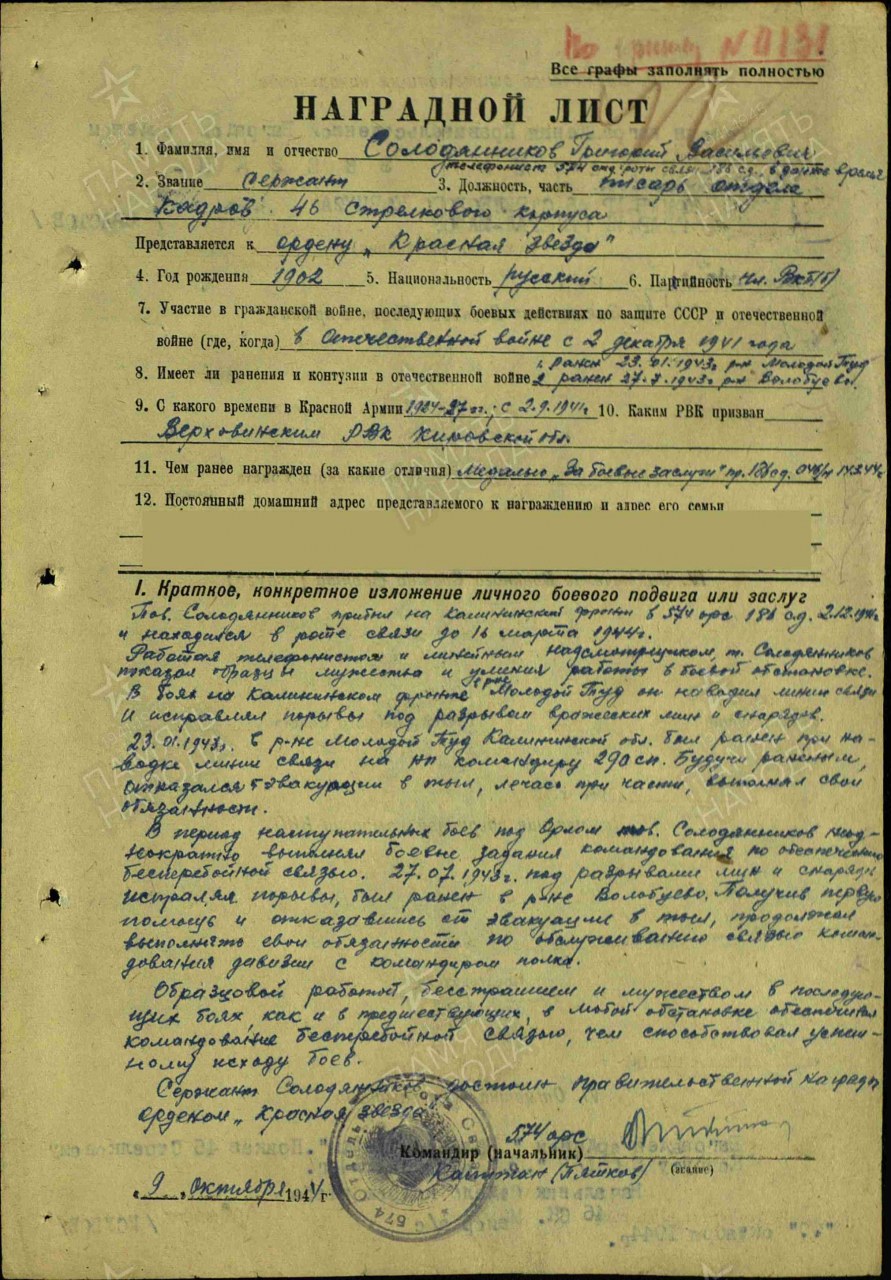 По приказу N 0131
Все графы заполнять полностью
НАГРАДНОЙ ЛИСТ
1. Фамилия, имя и отчество Солодянников Григорий Васильевич
телефонист 574 отд. роты связи 186 с.д., в данное время
2. Звание сержант 3. Должность, часть писарь отдела
кадров 46 стрелкового корпуса
Представляется к ордену „Красная звезда"
4. Год рождения 1902 5. Национальность русский 6. Партийность чл. ВКП(б)
7. Участие в гражданской войне, последующих боевых действиях по защите СССР и отечественной
войне (где, когда) в Отечественной войне с 2 декабря 1941 года
1. ранен 23.01.1943г. р-н Молодой Туд
8. Имеет ли ранения и контузии в отечественной войне 2 ранен 27.7.1943г. р-н Волобуево.
9. С какого времени в Красной Армии 1924-27 гг.; с 2.9.1941г. 10. Каким РВК призван
Верховинским РВК Кировской обл.
11. Чем ранее награжден (за какие отличия) Медалью „За боевые заслуги" пр. 186 сд. 046/н 14.3.44г.
12. Постоянный домашний адрес представляемого к награждению и адрес его семьи
I. Краткое, конкретное изложение личного боевого подвига или заслуг
Тов. Солодянников прибыл на Калининский фронт в 574 орс 186 с.д. 2.12.1941г.
и находился в роте связи до 16 марта 1944г.
Работая телефонистом и линейным надсмотрщиком, т. Солодянников
показал образцы мужества и умения работы в боевой обстановке.
В боях на Калининском фронте в р-не Молодой Туд он наводил линии связи
и исправлял порывы под разрывом вражеских мин и снарядов.
23.01.1943г. в р-не Молодой Туд Калининской обл. был ранен при на-
водке линии связи на НП командиру 290 сп. Будучи раненым,
отказался эвакуации в тыл, лечась при части, выполнял свои
обязанности.
В период наступательных боев под Орлом тов. Солодянников неод-
нократно выполнял боевые задания командования по обеспечению
бесперебойной связью. 27.07.1943г. под разрывами мин и снарядов
исправляя порывы, был ранен в р-не Волобуево. Получив первую
помощь и отказавшись от эвакуации в тыл, продолжал
выполнять свои обязанности по обслуживанию связью коман-
дования дивизии с командиром полка.
Образцовой работой, бесстрашием и мужеством в последую-
щих боях как и в предшествующих, в любой обстановке обеспечивал
командование бесперебойной связью, чем способствовал успеш-
ному исходу боев.
Сержант Солодянников достоин правительственной награды
орденом „Красная звезда"
574 орс
Командир (начальник)
Капитан (Пятков) (звание)
„9" октября 1944 г.